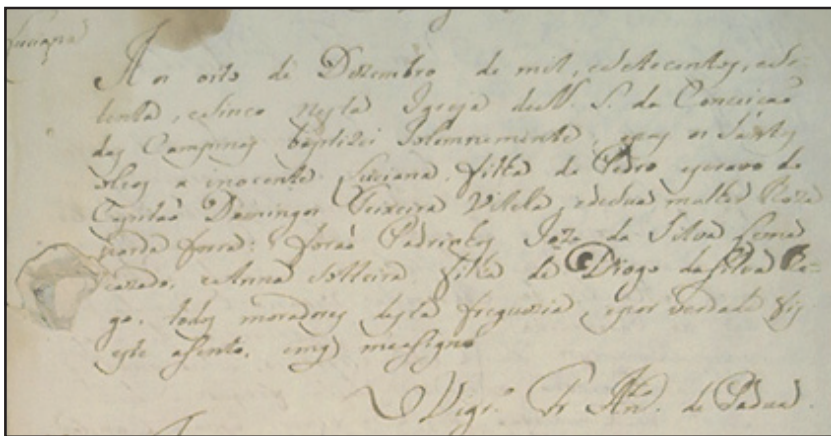 Luciana
Aos oito de Dezembro de mil, esetecentos, ese-
tenta, esinco nesta Igreja deN. S. da Conceicaõ
das Campinas baptizei Solemnemente, epus os Santos
oleos a inocente Luciana filha de Pedro escravo do
Capitaõ Domingos Teixeira Villela, edesua mulher Roza
parda forra: foraõ Padrinhos Joze da Silva
cazado, eAnna Solteira filha de Diogo daSilva Re-
go. todos moradores desta freguezia, epor verdade fiz
este asento, emq measigno
O Vigr.º Fr An.to de Padua.